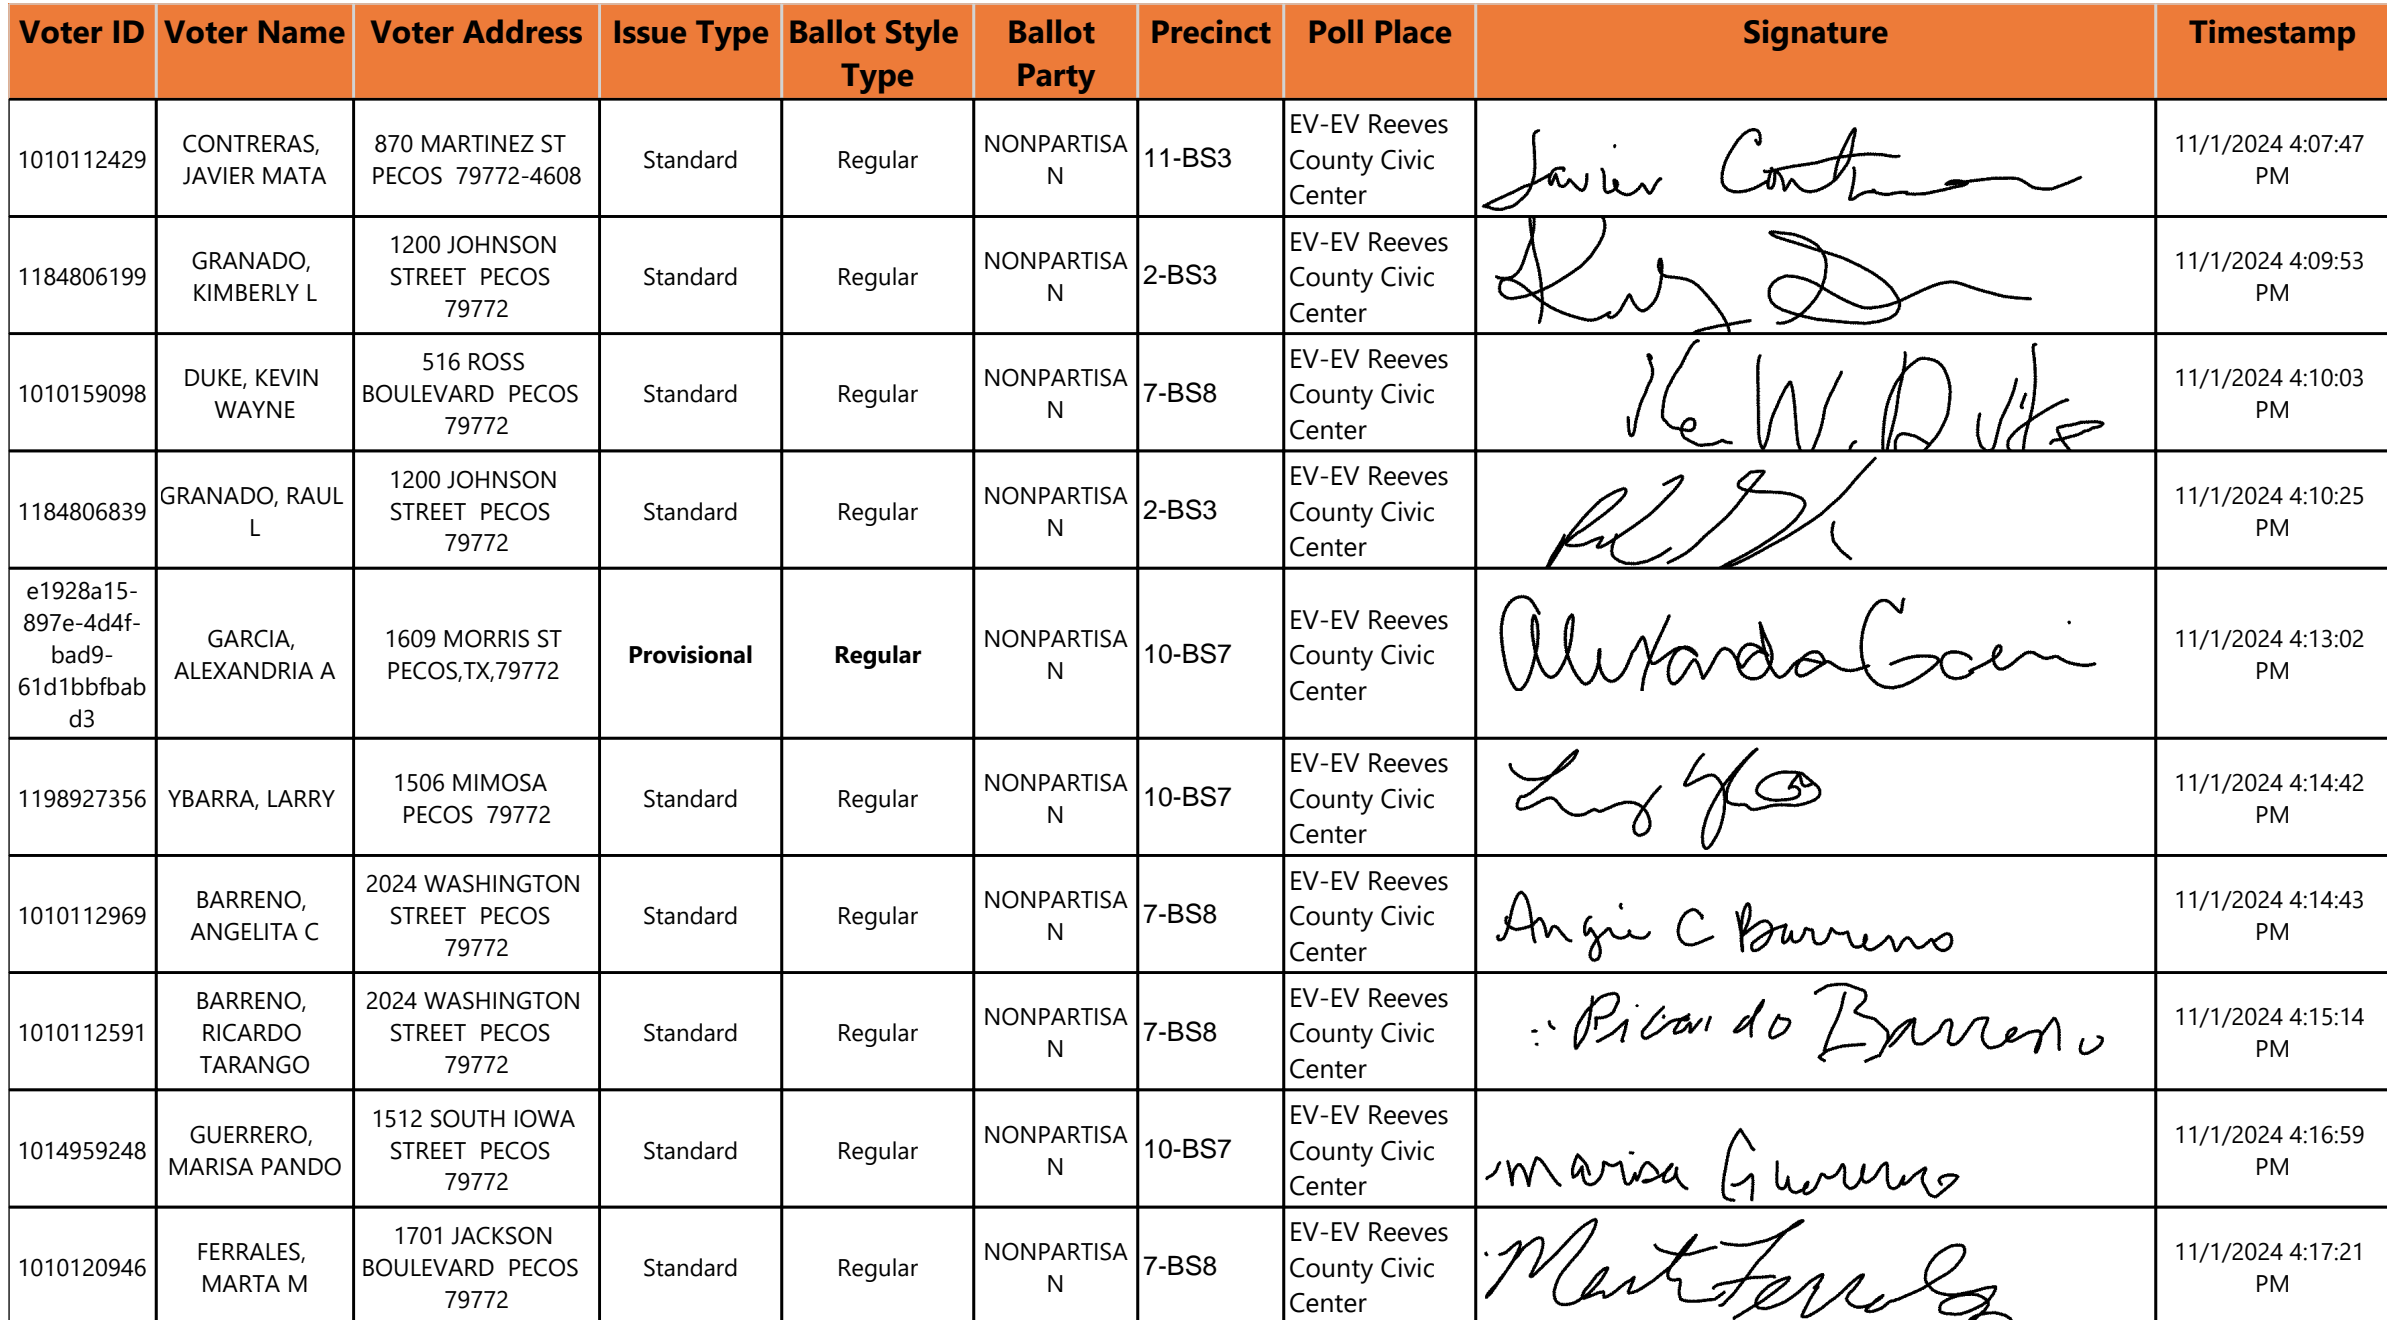 Voter ID Voter Name Voter Address Issue Type Ballot Style Type Ballot Party Precinct Poll Place Signature Timestamp
1010112429 CONTRERAS, JAVIER MATA 870 MARTINEZ ST PECOS 79772-4608 Standard Regular NONPARTISAN 11-BS3 EV-EV Reeves County Civic Center Javier Contreras 11/1/2024 4:07:47 PM
1184806199 GRANADO, KIMBERLY L 1200 JOHNSON STREET PECOS 79772 Standard Regular NONPARTISAN 2-BS3 EV-EV Reeves County Civic Center 11/1/2024 4:09:53 PM
1010159098 DUKE, KEVIN WAYNE 516 ROSS BOULEVARD PECOS 79772 Standard Regular NONPARTISAN 7-BS8 EV-EV Reeves County Civic Center W. Duke 11/1/2024 4:10:03 PM
1184806839 GRANADO, RAUL L 1200 JOHNSON STREET PECOS 79772 Standard Regular NONPARTISAN 2-BS3 EV-EV Reeves County Civic Center 11/1/2024 4:10:25 PM
e1928a15-897e-4d4f-bad9-61d1bbfbabd3 GARCIA, ALEXANDRIA A 1609 MORRIS ST PECOS,TX,79772 Provisional Regular NONPARTISAN 10-BS7 EV-EV Reeves County Civic Center 11/1/2024 4:13:02 PM
1198927356 YBARRA, LARRY 1506 MIMOSA PECOS 79772 Standard Regular NONPARTISAN 10-BS7 EV-EV Reeves County Civic Center 11/1/2024 4:14:42 PM
1010112969 BARRENO, ANGELITA C 2024 WASHINGTON STREET PECOS 79772 Standard Regular NONPARTISAN 7-BS8 EV-EV Reeves County Civic Center Angie C Barreno 11/1/2024 4:14:43 PM
1010112591 BARRENO, RICARDO TARANGO 2024 WASHINGTON STREET PECOS 79772 Standard Regular NONPARTISAN 7-BS8 EV-EV Reeves County Civic Center Ricardo Barreno 11/1/2024 4:15:14 PM
1014959248 GUERRERO, MARISA PANDO 1512 SOUTH IOWA STREET PECOS 79772 Standard Regular NONPARTISAN 10-BS7 EV-EV Reeves County Civic Center Marisa Guerrero 11/1/2024 4:16:59 PM
1010120946 FERRALES, MARTA M 1701 JACKSON BOULEVARD PECOS 79772 Standard Regular NONPARTISAN 7-BS8 EV-EV Reeves County Civic Center Marta Ferrales 11/1/2024 4:17:21 PM